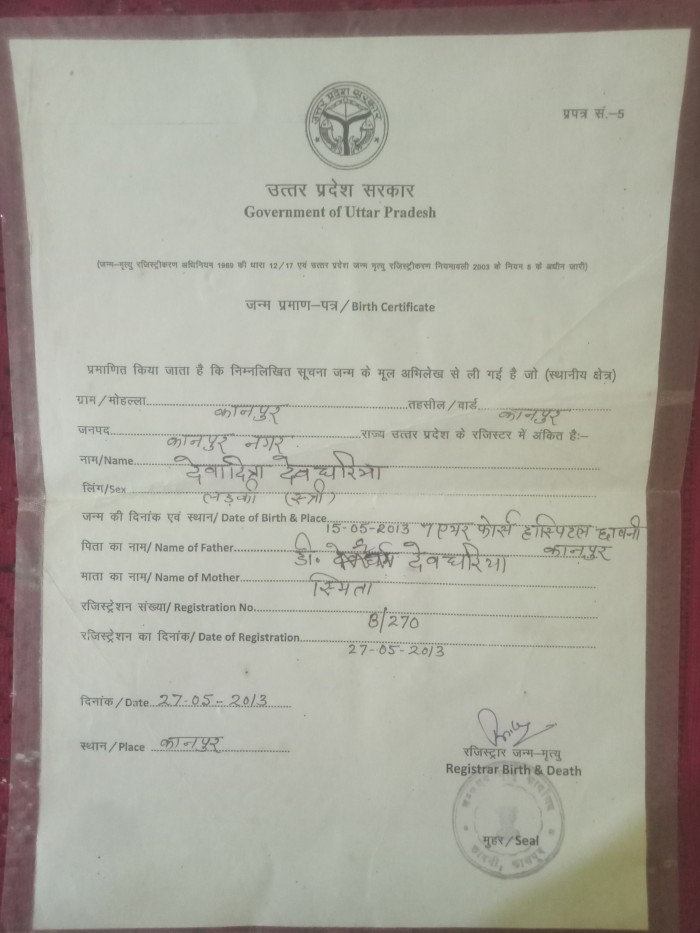 उत्तर प्रदेश सरकार
प्रपत्र सं.–5
उत्तर प्रदेश सरकार
Government of Uttar Pradesh
(जन्म–मृत्यु रजिस्ट्रीकरण अधिनियम 1969 की धारा 12/17 एवं उत्तर प्रदेश जन्म मृत्यु रजिस्ट्रीकरण नियमावली 2003 के नियम 8 के अधीन जारी)
जन्म प्रमाण–पत्र / Birth Certificate
प्रमाणित किया जाता है कि निम्नलिखित सूचना जन्म के मूल अभिलेख से ली गई है जो (स्थानीय क्षेत्र)
ग्राम / मोहल्ला कानपुर तहसील / वार्ड कानपुर
जनपद कानपुर नगर राज्य उत्तर प्रदेश के रजिस्टर में अंकित है:–
नाम/Name देवादित्रा देवघरिया
लिंग/Sex लड़की (स्त्री)
जन्म की दिनांक एवं स्थान/ Date of Birth & Place 15-05-2013 7 एअर फोर्स हास्पिटल छावनी
कानपुर
पिता का नाम/ Name of Father डी. देवघरिया
माता का नाम/ Name of Mother स्मिता
रजिस्ट्रेशन संख्या/ Registration No. B/270
रजिस्ट्रेशन का दिनांक/ Date of Registration 27-05-2013
दिनांक / Date 27-05-2013
स्थान / Place कानपुर
रजिस्ट्रार जन्म–मृत्यु
Registrar Birth & Death
मुहर / Seal
छावनी, कानपुर